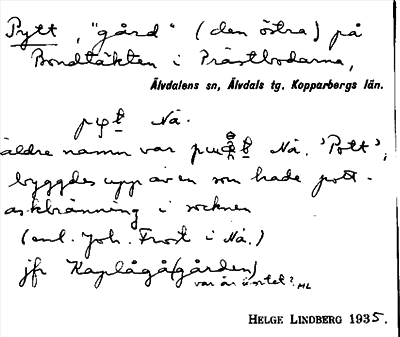 Pytt, "gård" (den östra) på
Bondtäkten i Prästbodarna,
Älvdalens sn, Älvdals tg. Kopparbergs län.
Nå.
äldre namn var Nå. 'Pott',
byggdes upp av en som hade pott-
askbränning i socknen
(enl. Joh. Frost i Nå.)
jfr Kaplågå(gården)
var är ortet? ML
HELGE LINDBERG 1935.